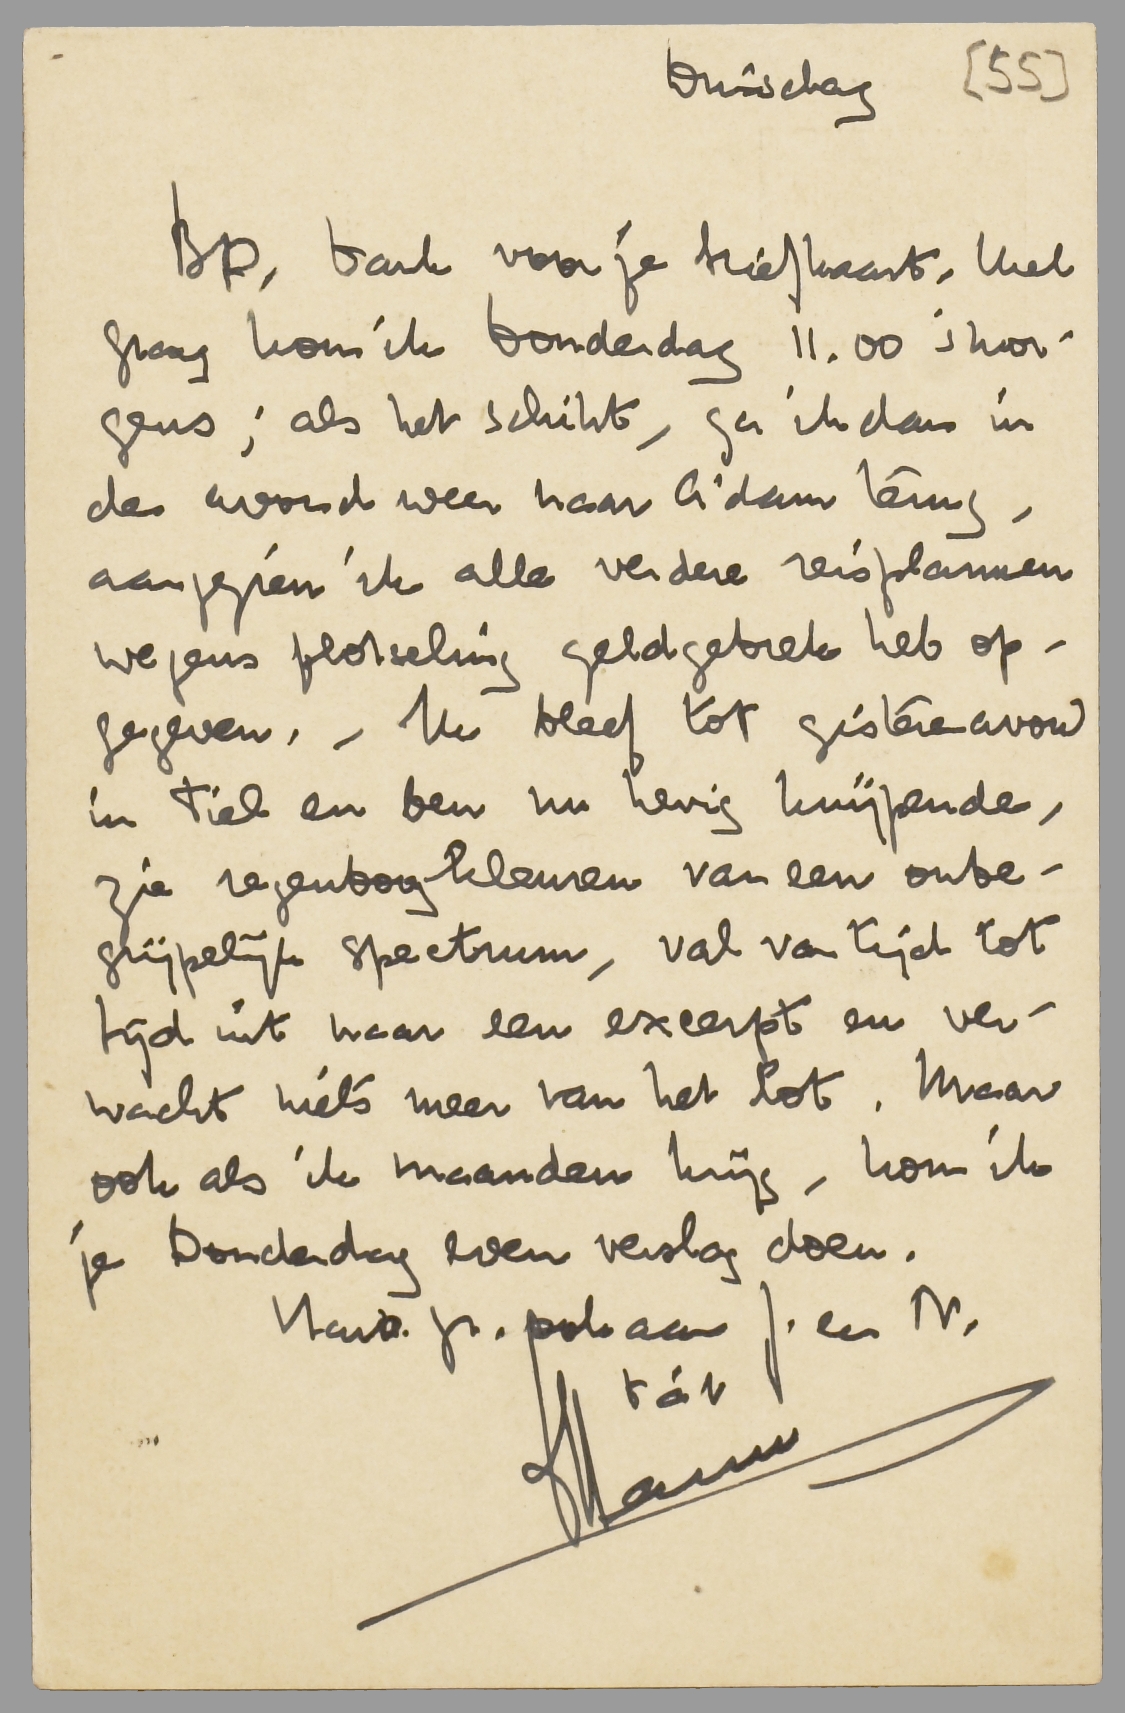 Dinsdag [55]
BP, dank voor je briefkaart. Heel
graag kom ik Donderdag 11.00 's mor-
gens; als het schikt, ga ik dan in
de avond weer naar A'dam terug,
aangezien ik alle verdere reisplannen
wegens plotseling geldgebrek heb op-
gegeven. – Ik bleef tot gisterenavond
in Tiel en ben nu hevig knijpende,
zie regenboogkleuren van een onbe-
grijpelijk spectrum, val van tijd tot
tijd uit naar een excerpt en ver-
wacht niets meer van het lot. Maar
ook als ik maanden krijg, kom ik
je Donderdag even verslag doen.
Hart. gr. ook aan J. en N.
t.à.v
Menno